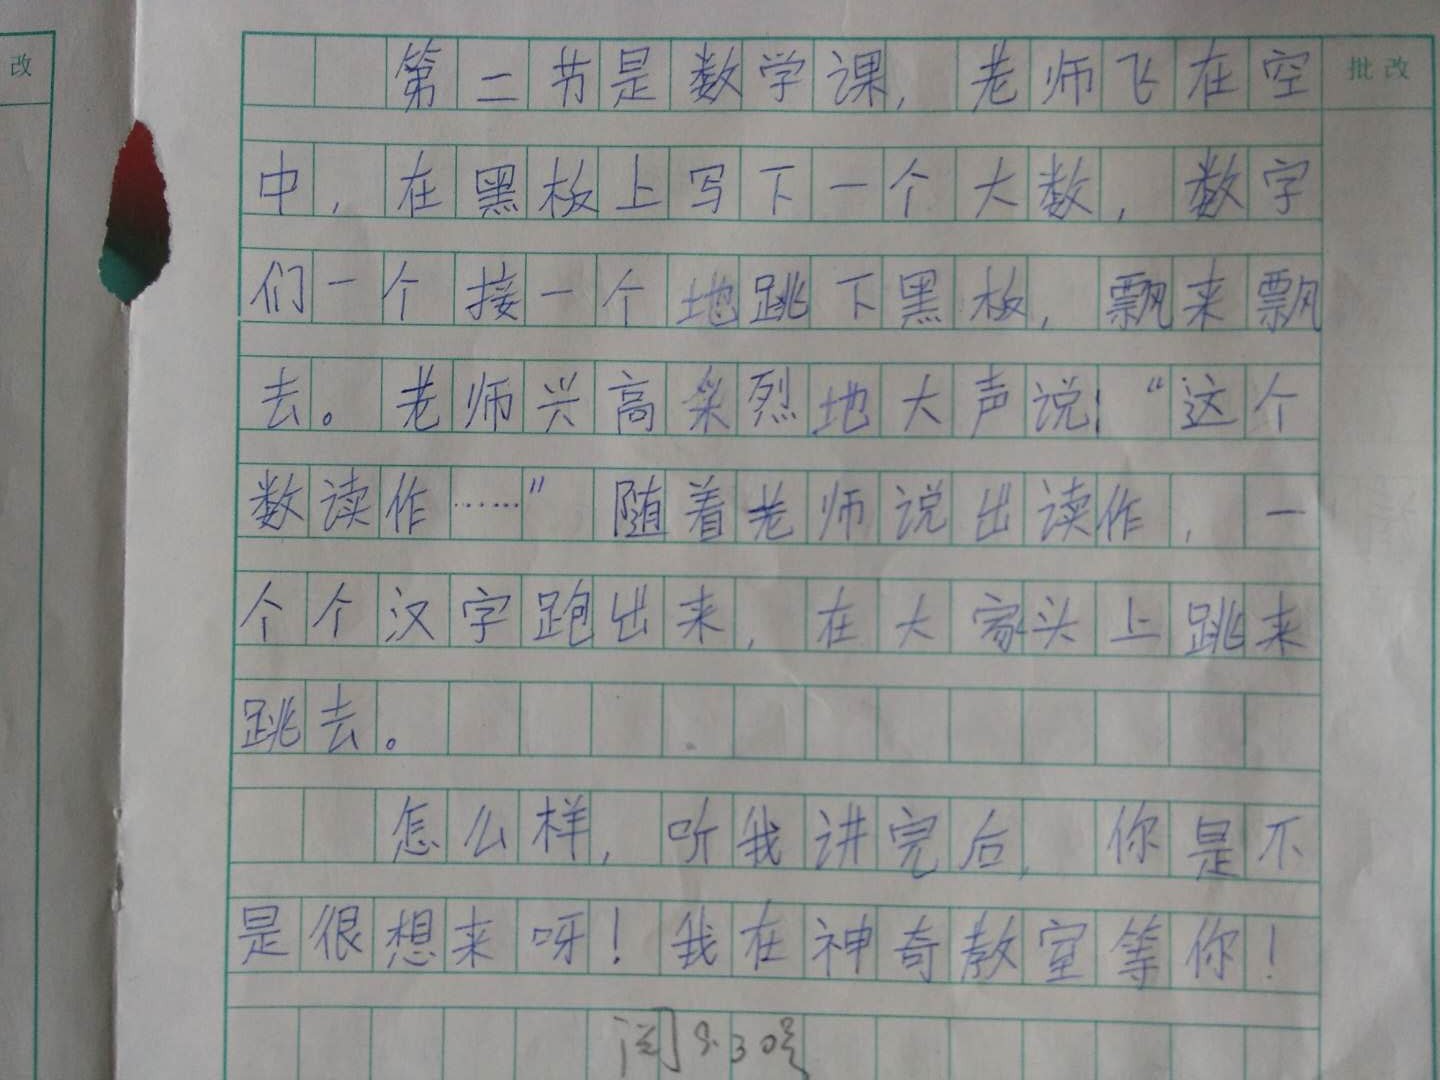 改
批改
第二节是数学课，老师飞在空
中，在黑板上写下一个大数，数字
们一个接一个地跳下黑板，飘来飘
去。老师兴高采烈地大声说：“这个
数读作……”随着老师说出读作，一
个个汉字跑出来，在大家头上跳来
跳去。
怎么样，听我讲完后，你是不
是很想来呀！我在神奇教室等你！
阅